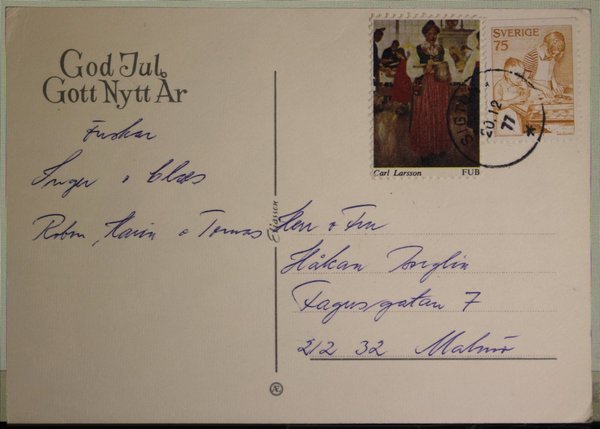 God Jul
Gott Nytt År
Önskar
Inger o Claes
Robin, Karin o Tomas
Eliasson
Carl Larsson FUB
SVERIGE
75
SIGTUNA
20.12
77
*
Herr o Fru
Håkan
Fagusgatan 7
212 32 Malmö
Æ